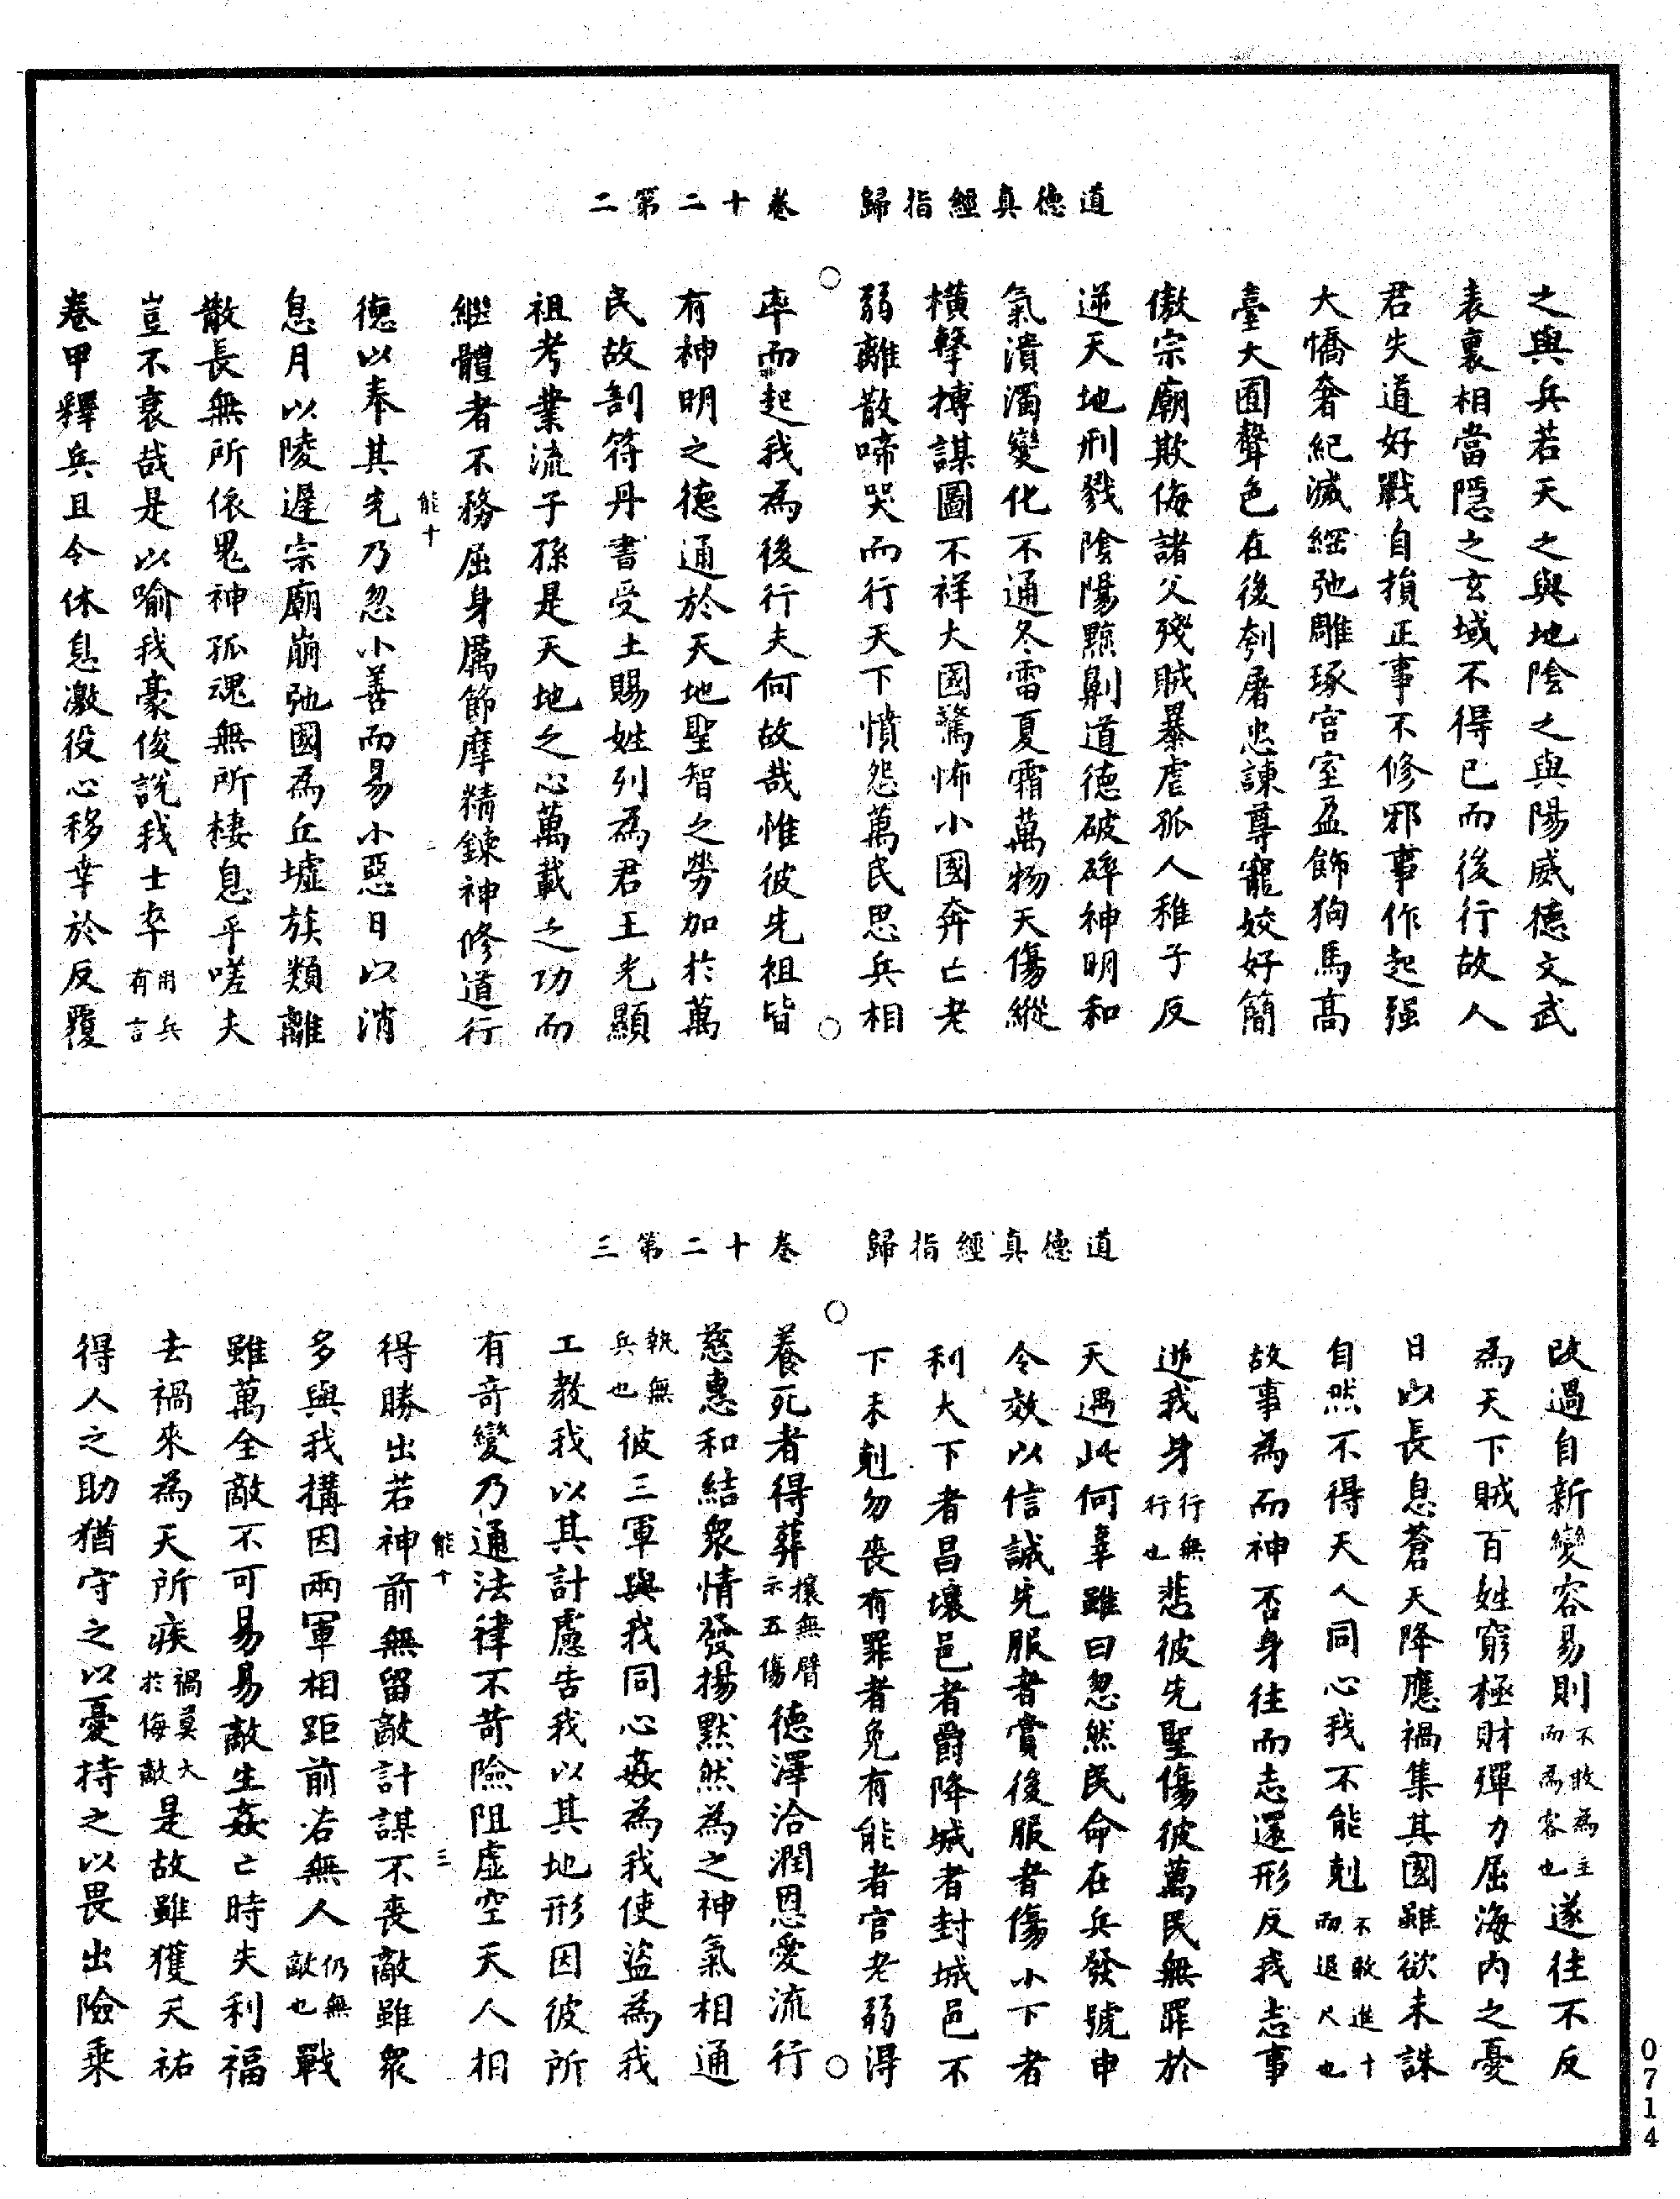 道德真經指歸　卷十二第二
之與兵若天之與地陰之與陽威德文武
表裏相當隱之玄域不得已而後行故人
君失道好戰自損正事不修邪事作起强
大憍奢紀滅綱弛雕琢宫室盈飾狗馬高
臺大囿聲色在後刳屠忠諫尊寵姣好簡
傲宗廟欺侮諸父殘賊暴虐孤人稚子反
逆天地刑戮陰陽黥劓道德破碎神明和
氣潰濁變化不通冬雷夏霜萬物夭傷縱
橫擊搏謀圖不祥大國驚怖小國奔亡老
弱離散啼哭而行天下憤怨萬民思兵相
率而起我為後行夫何故哉惟彼先祖皆
有神明之德通於天地聖智之勞加於萬
民故剖符丹書受土賜姓列為君王光顯
祖考業流子孫是天地之心萬載之功而
繼體者不務屈身厲節摩精鍊神修道行
能十　二
德以奉其先乃忽小善而易小惡日以消
息月以陵遲宗廟崩弛國為丘墟族類離
散長無所依鬼神孤魂無所棲息乎嗟夫
豈不哀哉是以喻我豪俊說我士卒用兵有言
卷甲釋兵且令休息激役心移幸於反覆
道德真經指歸　卷十二第三
改過自新變容易則不敢為主而為客也遂往不反
為天下賊百姓窮極財殫力屈海内之憂
日以長息蒼天降應禍集其國雖欲未誅
自然不得天人同心我不能剋不敢進十而退尺也
故事為而神否身往而志還形反我志事
逆我身行無行也悲彼先聖傷彼萬民無罪於
天遇此何辜雖曰忽然民命在兵發號申
令效以信誠先服者賞後服者傷小下者
利大下者昌壤邑者爵降城者封城邑不
下未剋勿喪有罪者免有能者官老弱得
養死者得葬攘無臂示五傷德澤洽潤恩愛流行
慈惠和結衆情發揚默然為之神氣相通
執無兵也彼三軍與我同心姦為我使盜為我
工教我以其計慮告我以其地形因彼所
有奇變乃通法律不苛險阻虚空天人相
能十　三
得勝出若神前無留敵計謀不喪敵雖衆
多與我搆因兩軍相距前若無人仍無敵也戰
雖萬全敵不可易易敵生姦亡時失利福
去禍來為天所疾禍莫大於侮敵是故雖獲天祐
得人之助猶守之以憂持之以畏出險乘
0714